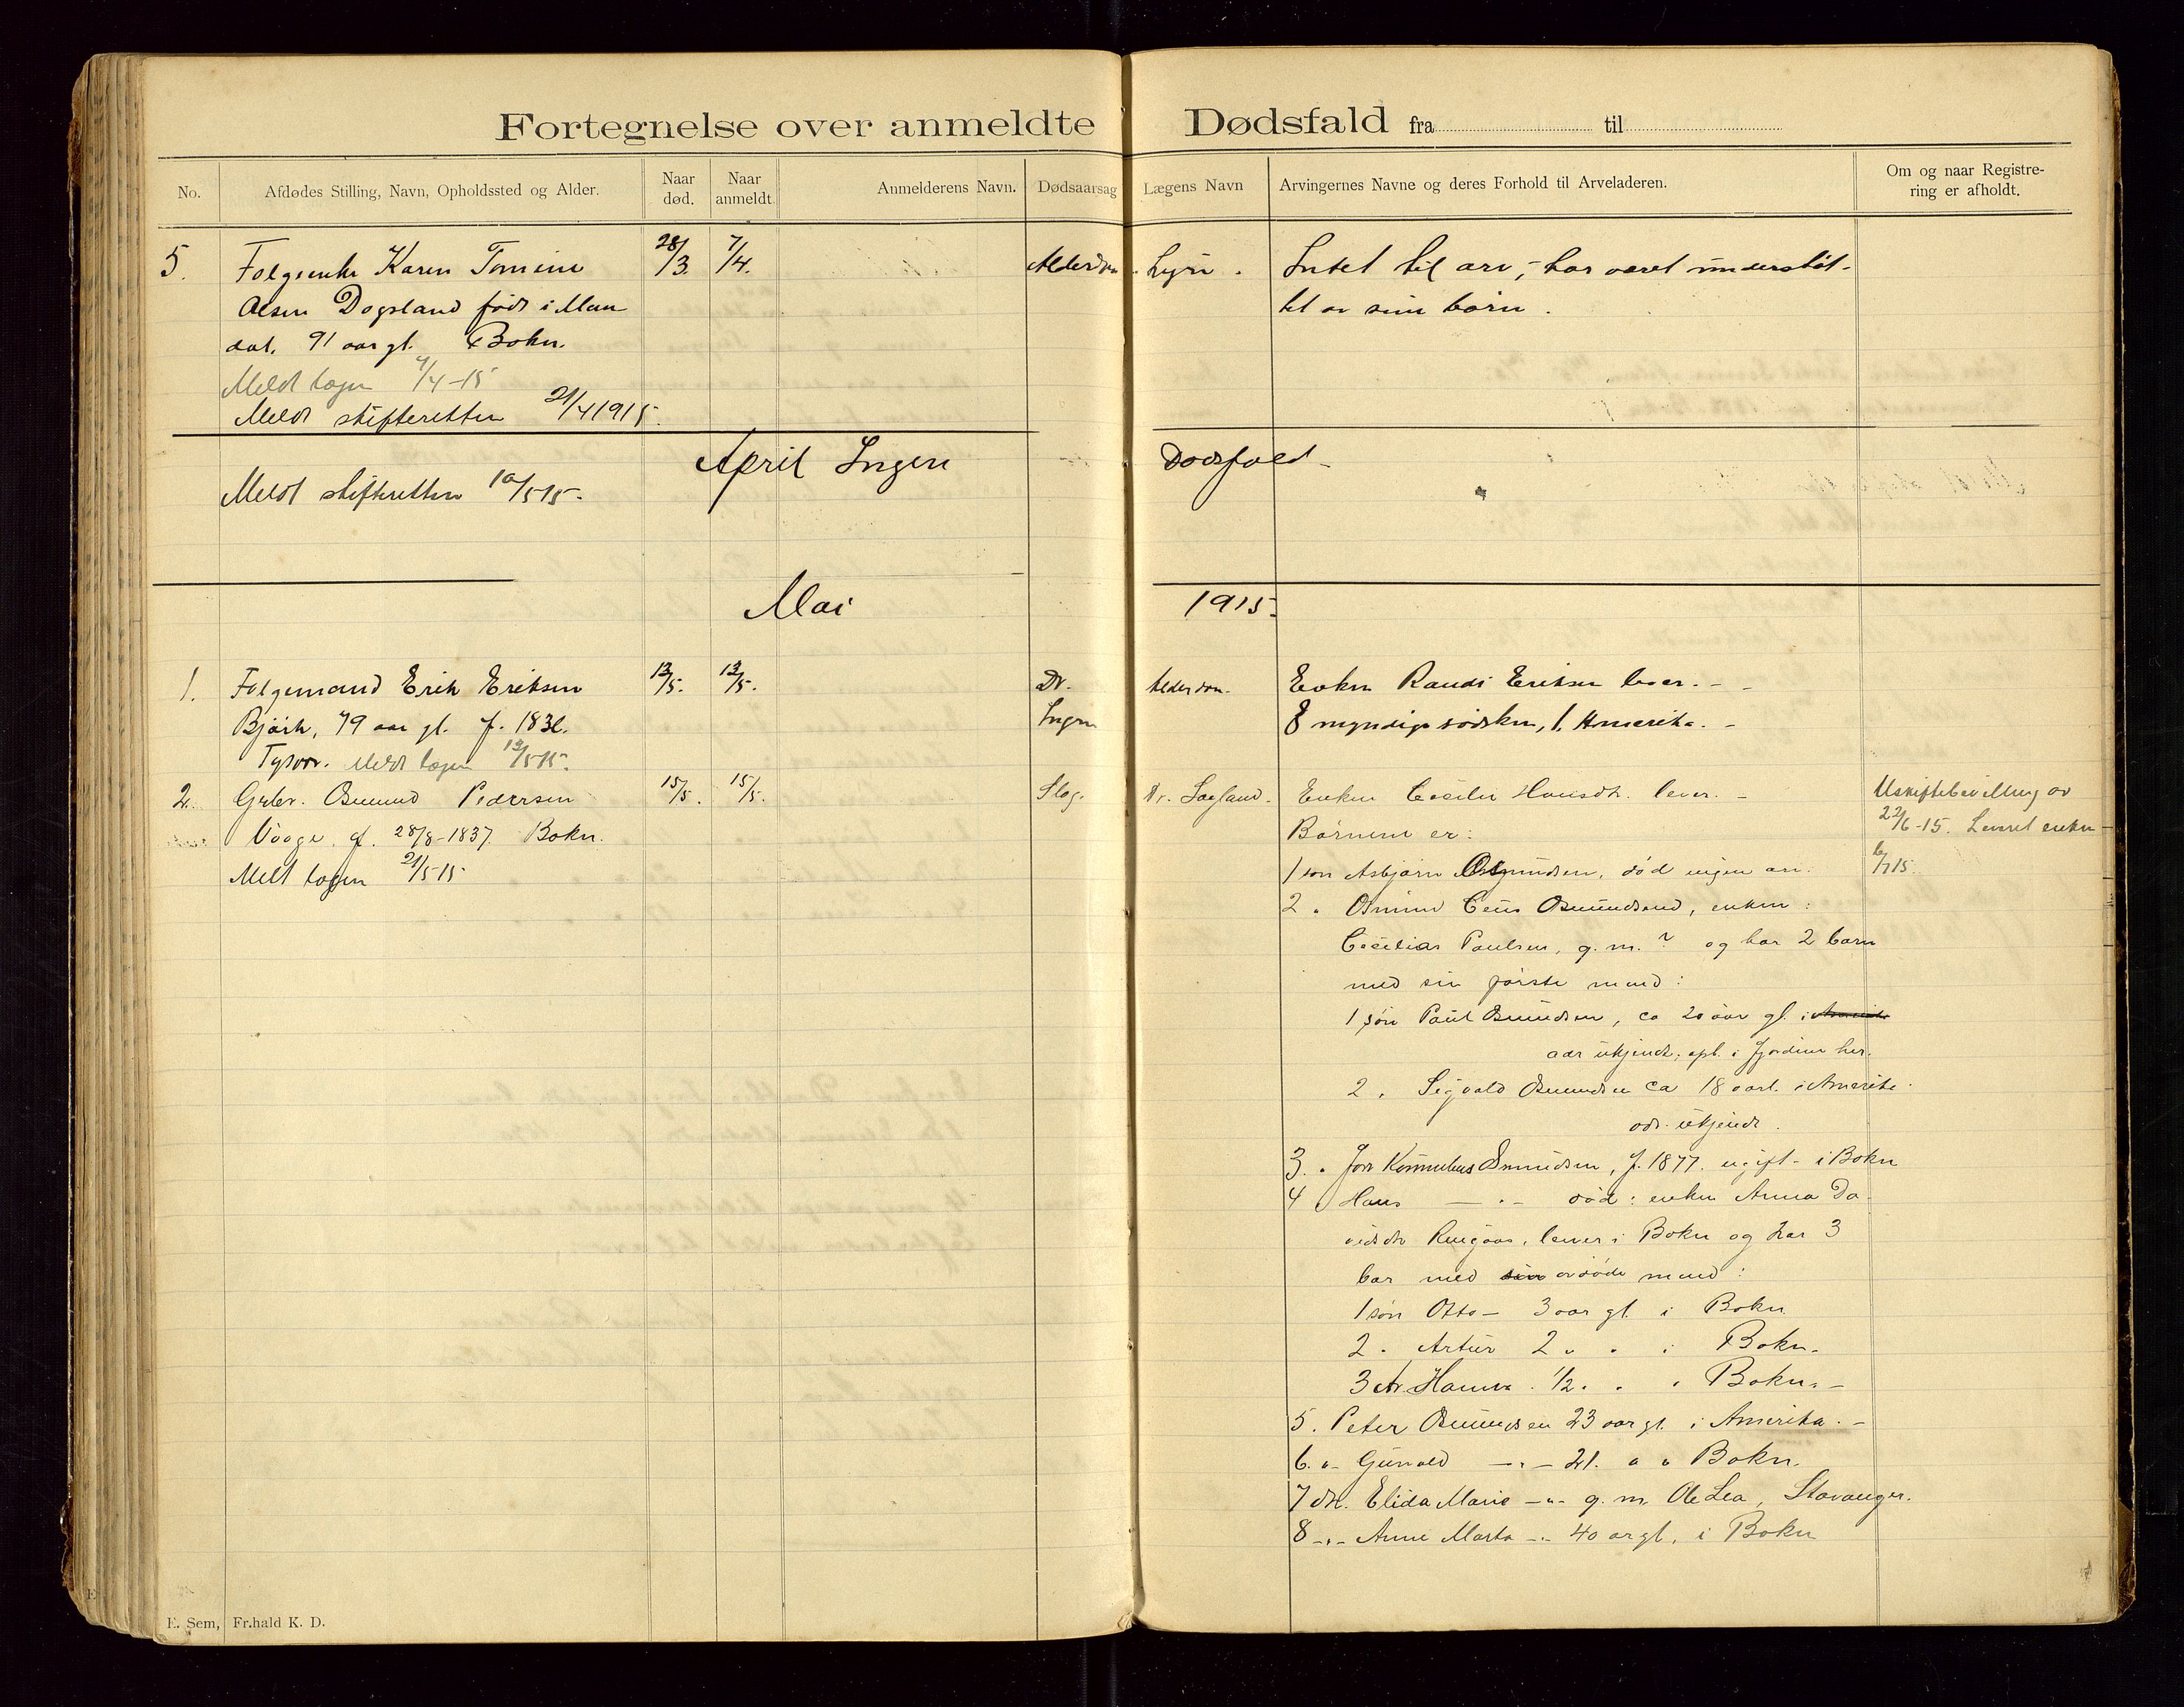 Fortegnelse over anmeldte Dødsfald fra til
No. Afdødes Stilling, Navn, Opholdssted og Alder. Naar død. Naar anmeldt. Anmelderens Navn. Dødsaarsag Lægens Navn Arvingernes Navne og deres Forhold til Arveladeren. Om og naar Registrering er afholdt.
5. Folgeenke Karen Tomine 28/3 7/4. Alderdom Ingen. Intet til arv, - har været understøt-
Olsen Dogsland født i Man tet av sine børn.
dal. 91 aar gl. Bokn.
Meldt lagen 7/4-15
Meldt skifteretten 21/4 1915.
April Ingen Dødsfald
Meldt skifteretten 10/5 15.
Mai 1915.
1. Folgemand Erik Eriksen 12/5. 12/5. Dr. Alderdom. Enken Randi Eriksen lever. -
Bjørk, 79 aar gl. f. Ingen 8 myndige sødsken, 1. Amerika. -
Tysvær. Meldt lagen 12/5 15.
2. Grbr. Osmund Pedersen 15/5. 15/5. Slag. Dr. Hansdtr. lever. - Uskiftebevilling av
Vaage f. 28/8-1837. Bokn. Børnene er: 22/6-15. Levret enken
Melt lagen 21/5 15 1 søn Asbjørn Osmundsen, død ingen arv. 6/7 15.
2 " Osmund Osmundsen, enken:
Cecilia Paulsen, g. m. ? og har 2 barn
med sin første mand:
1 søn Paul Osmundsen, ca 20 aar gl. i Amerika
adr ukjendt, opl. i Fjordene her.
2 " Sigvald Osmundsen ca 18 aarl. i Amerika
adr. ukjendt.
3. " Osmundsen, f. 1877. ugift - i Bokn
4 " Hans — " — død: enken Anna Da
vidsdtr lever i Bokn og har 3
bar med sin avdøde mand:
1 søn Otto - 3 aar gl. i Bokn
2 " Artur 2 " " i Bokn.
3 dtr. Hanna 1/2 " " " Bokn. -
5. Peter Osmundsen 23 aar gl. i Amerika. -
6. " Gunvald — " — 21. " " Bokn.
7 dtr. Elida Marie — " — g. m. Ole Lea, Stavanger.
8 — " — Anne Marta — " — 40 ar gl. i Bokn
E. Sem, Fr.hald K. D.